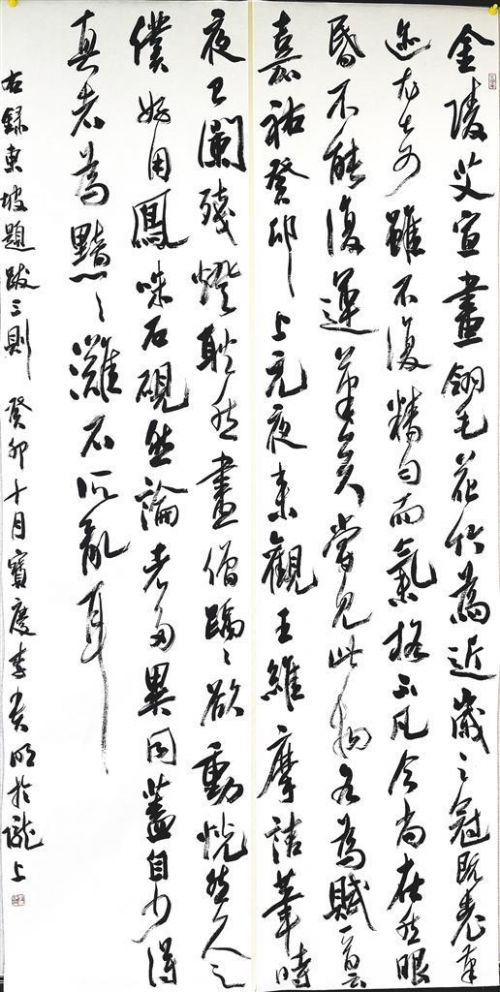 金陵艾宣畫翎毛花竹為近歲之冠既老筆
迹尤奇雖不復精匀而氣格不凡今尚在然眼
昏不能復運筆矣嘗見此物各為賦一首云
嘉祐癸卯上元夜来觀王維摩詰筆時
夜已闌殘燈耿然畫僧踽〻欲動恍然久之
僕好用鳳咮石硯然論者多異同蓋自少得
真者為黯〻灘石所亂耳
右録東坡題跋三則 癸卯十月寶慶李 明於 上